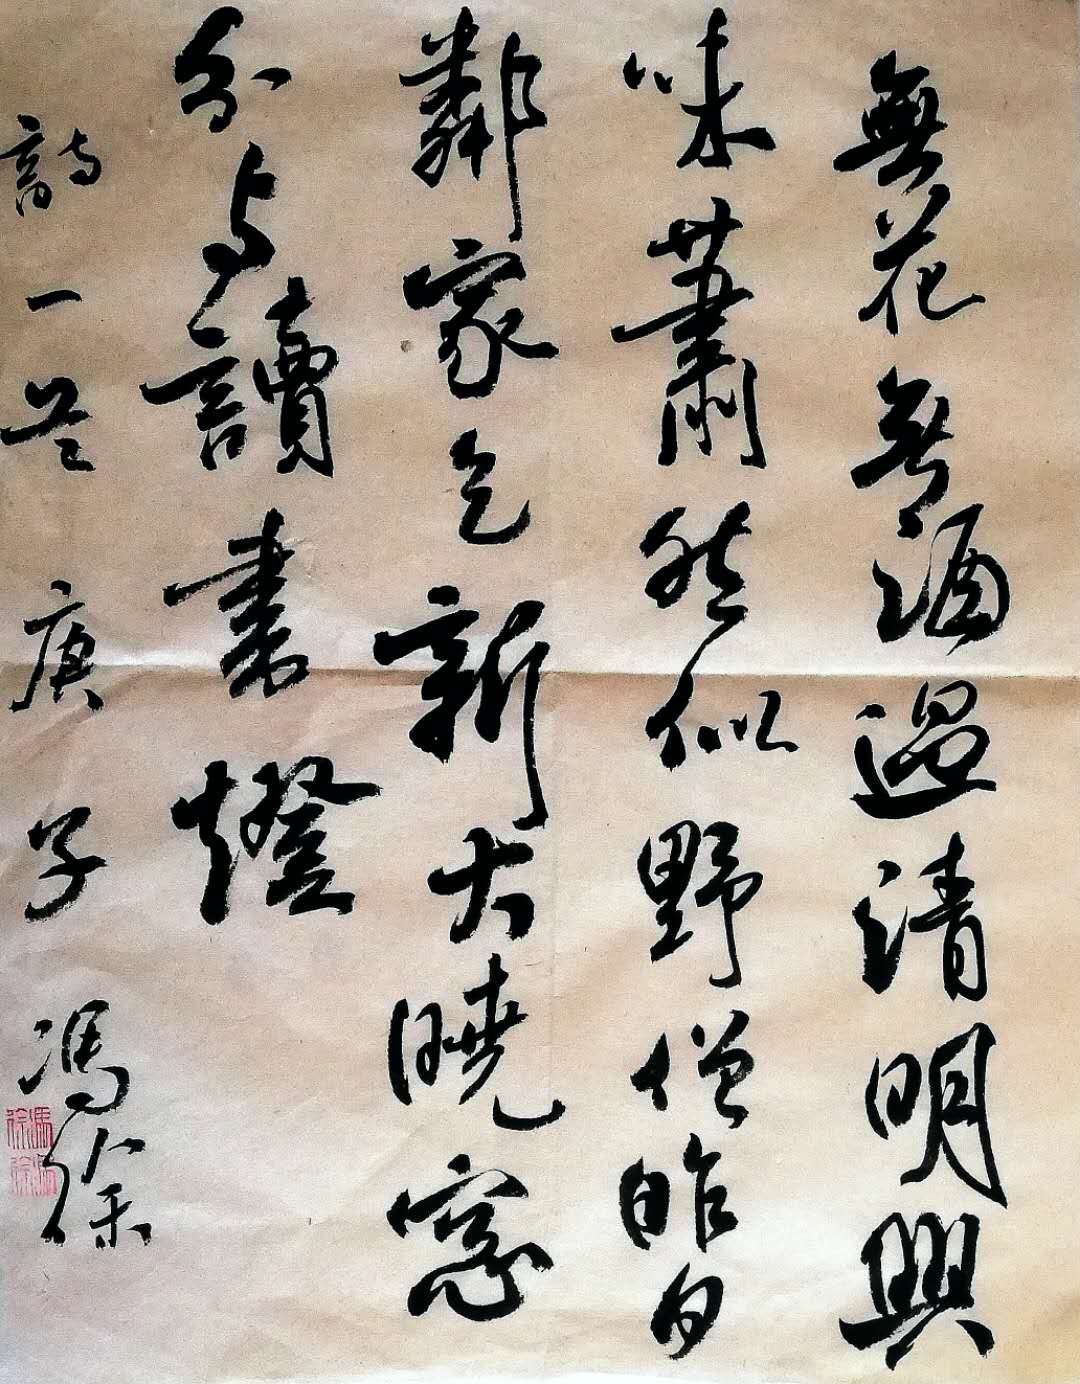 無花無酒過清明興
味蕭然似野僧昨日
鄰家乞新火曉窓
分与讀書燈
詩一首 庚子 馮徐